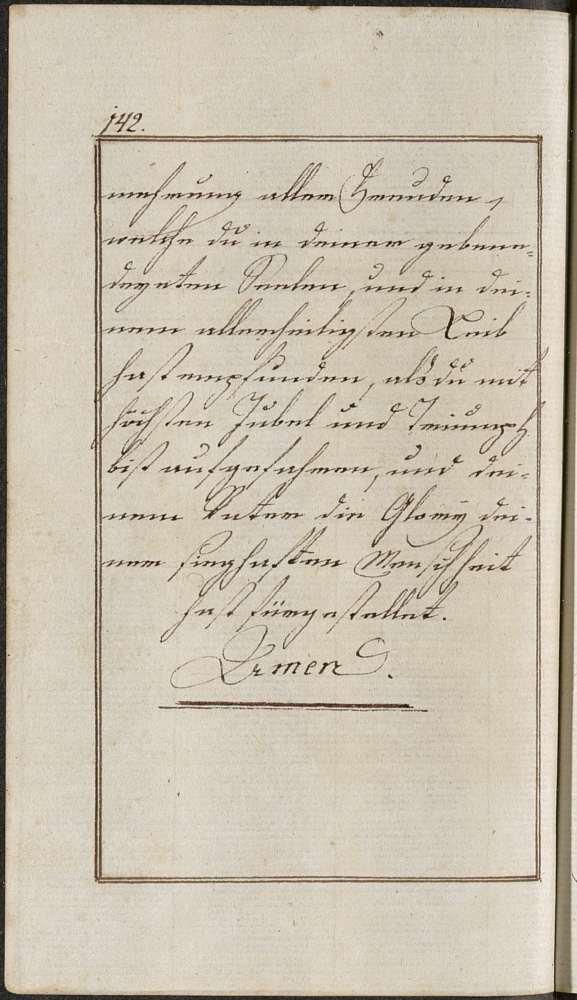 142.
mehrung aller Freuden,
welche du in deiner gebene-
deyten Seelen, und in dei-
nem allerheiligsten Leib
hast empfunden, als du mit
höchsten Jubel und Triumph
bist aufgefahren, und dei-
nem Vater die Glory dei-
ner sieghaften Menschheit
hast fürgestellet.
Amen.